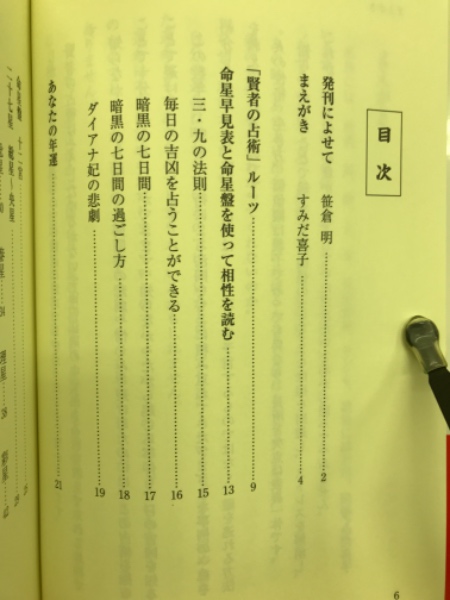 目次
発刊によせて 笹倉 明 2
まえがき すみだ喜子 4
「賢者の占術」ルーツ 9
命星早見表と命星盤を使って相性を読む 13
三・九の法則 15
毎日の吉凶を占うことができる 16
暗黒の七日間 17
暗黒の七日間の過ごし方 18
ダイアナ妃の悲劇 19
あなたの年運 21
6